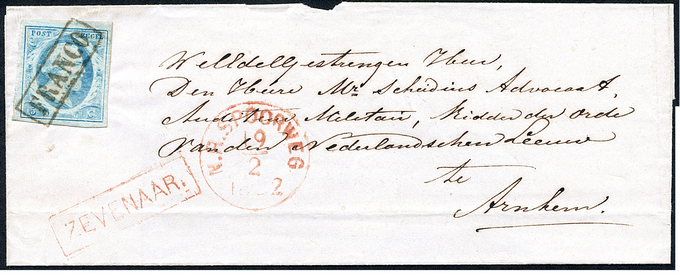 POST ZEGEL
FRANCO
WellEdelgestrengen Heer,
Den Heere Mr Scheidius Advocaat,
Auditeur Militair, Ridder der Orde
van den Nederlandschen Leeuw
te
Arnhem.
N.R.SPOORWEG
19
2
ZEVENAAR.